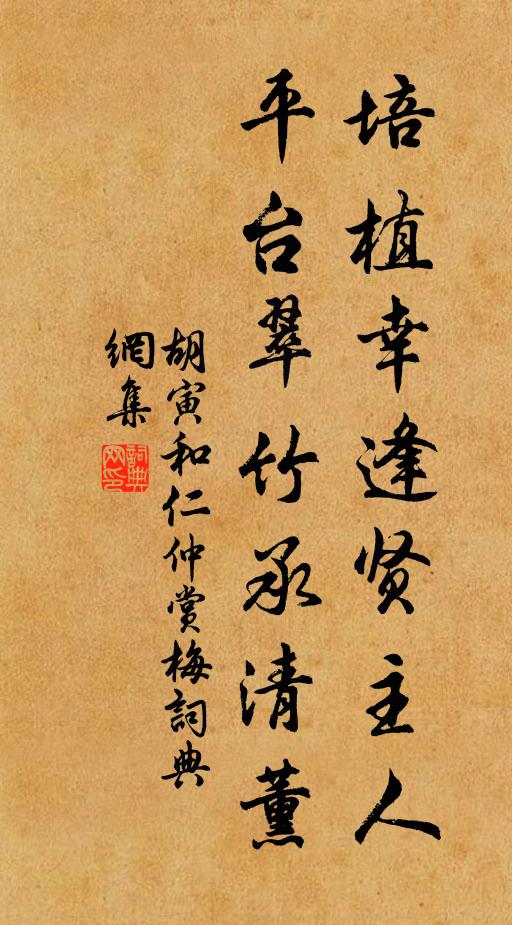 培植幸逢贤主人
平台翠竹承清薰
胡寅和仁仲赏梅詞典
網集
詞典
网印